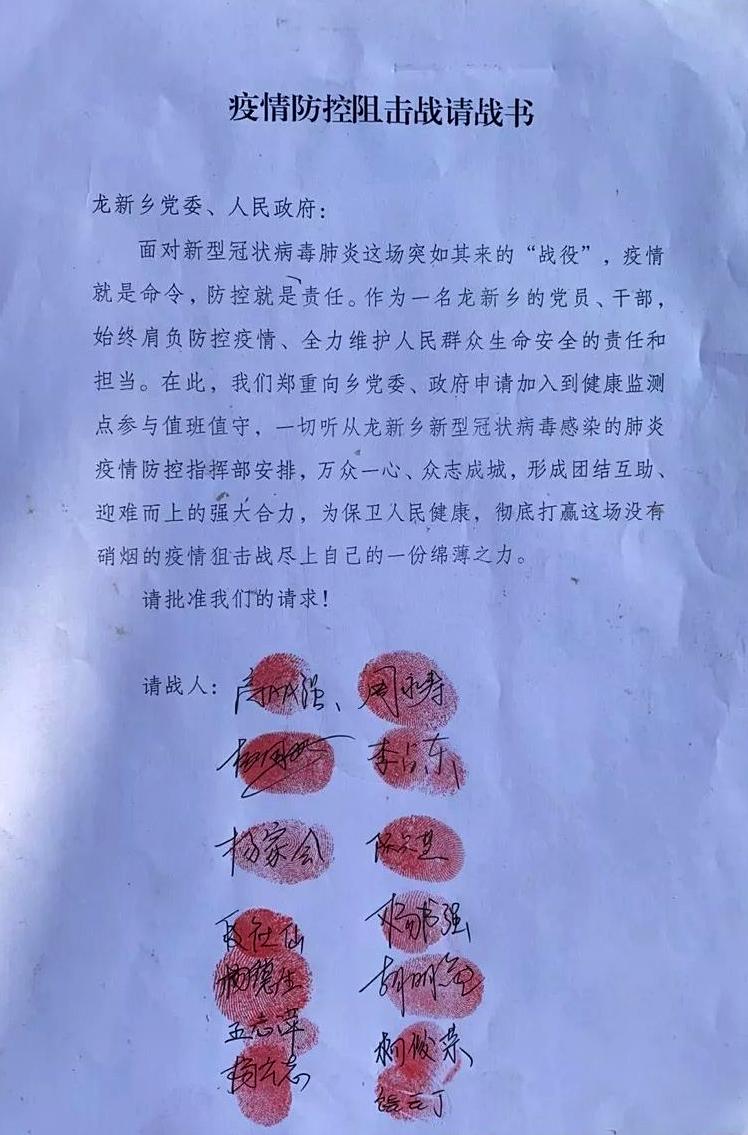 疫情防控阻击战请战书
龙新乡党委、人民政府：
面对新型冠状病毒肺炎这场突如其来的“战役”，疫情
就是命令，防控就是责任。作为一名龙新乡的党员、干部，
始终肩负防控疫情、全力维护人民群众生命安全的责任和
担当。在此，我们郑重向乡党委、政府申请加入到健康监测
点参与值班值守，一切听从龙新乡新型冠状病毒感染的肺炎
疫情防控指挥部安排，万众一心、众志成城，形成团结互助、
迎难而上的强大合力，为保卫人民健康，彻底打赢这场没有
硝烟的疫情狙击战尽上自己的一份绵薄之力。
请批准我们的请求！
请战人： 周永寿
杨家会
杨书强
杨德生
王志萍 杨俊荣